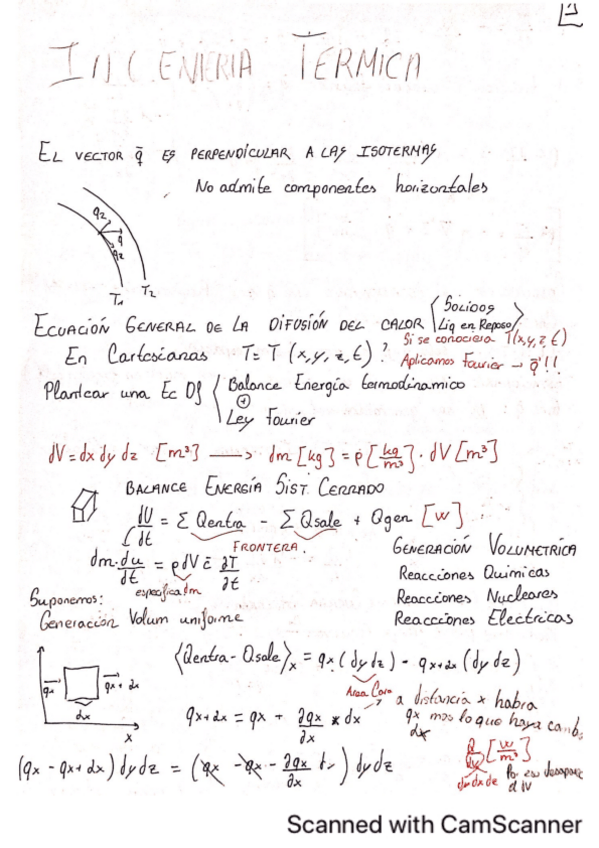 INGENIERIA TERMICA
EL VECTOR q̄ ES PERPENDICULAR A LAS ISOTERMAS
No admite componentes horizontales
q2
q
q2
T1 T2
ECUACIÓN GENERAL DE LA DIFUSIÓN DEL CALOR ⟨Solidos
Liq en Reposo⟩
En Cartesianas T= T (x, y, z, t)?
Si se conociera T(x,y,z,t)
Aplicamos Fourier → q̄!!
Plantear una Ec Df { Balance Energía termodinamico
⊕
Ley Fourier
dV = dx dy dz [m³] → dm [kg] = ρ [kg/m³] · dV [m³]
BALANCE ENERGÍA SIST CERRADO
dU/dt = Σ Qentra - Σ Qsale + Qgen [W]
FRONTERA
dm · du/dt = ρ dV c̄ ∂T/∂t
especifica dm
GENERACIÓN VOLUMETRICA
Reacciones Quimicas
Reacciones Nucleares
Reacciones Electricas
Suponemos:
Generación Volum uniforme
⟨Qentra - Qsale⟩x = qx (dy dz) - qx+dx (dy dz)
Area Cara
qx qx + dx
dx
x
qx+dx = qx + ∂qx/∂x * dx
a distancia x habra
qx mas lo que haya camb.
dx
(qx - qx+dx) dy dz = (qx - qx - ∂qx/∂x dx) dy dz
[W/m³]
Por eso desaparece
el dV
Scanned with CamScanner